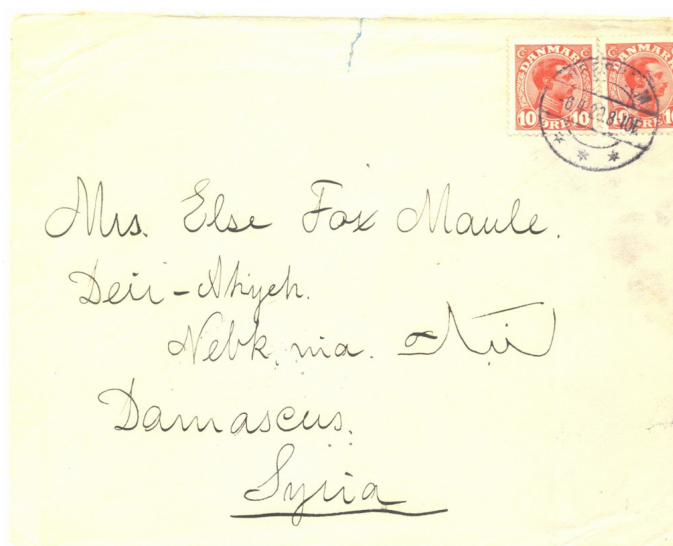 DANMARK DANMARK
10 ØRE 10
Mrs. Else Fox Maule.
Deir-Atiyeh.
Nebk, via.
Damascus.
Syria